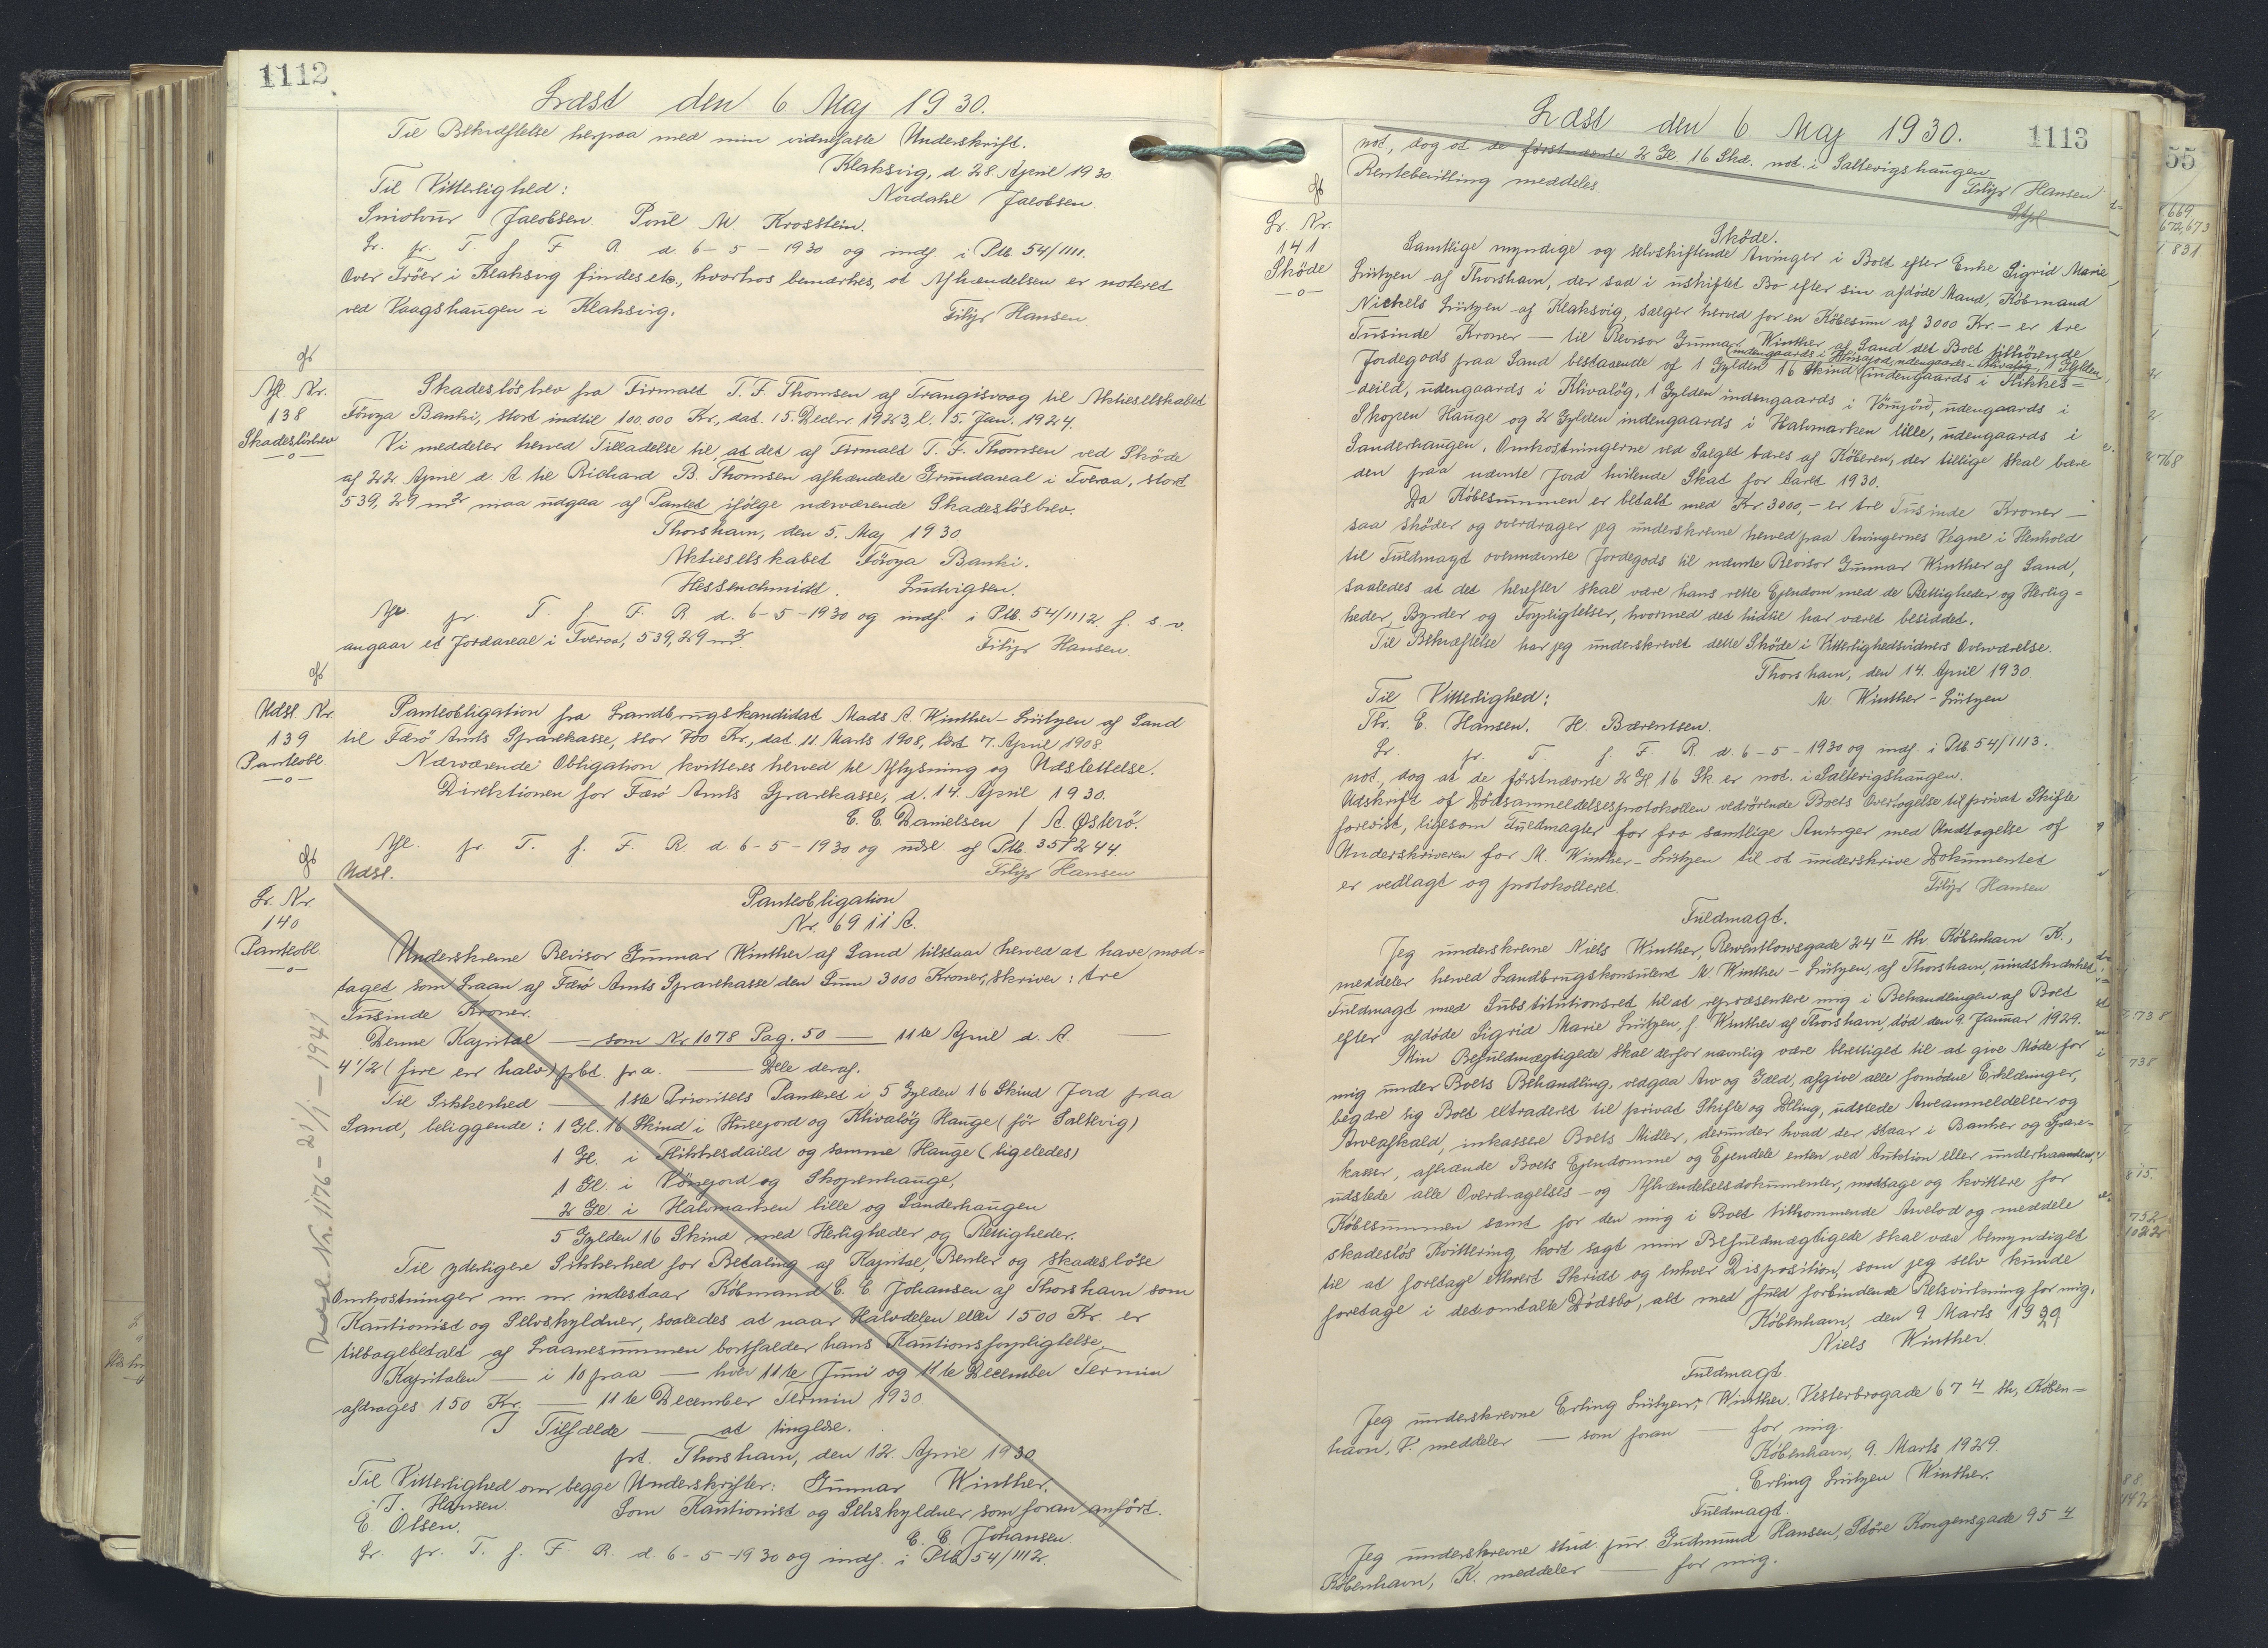 1112
Læst den 6 Maj 1930.
Til Bekræftelse herpaa med min vidnefaste Underskrift.
Klaksvig, d. 28. April 1930
Til Vitterlighed:
Nordahl Jacobsen.
Jacobsen. Poul M. Krosstein.
Lr. pr. T. f. F. R. d. 6-5-1930 og indf. i Ptb. 54/1111.
Over Tröer i Klaksvig findes etc., hvorhos bemærkes, at Afhændelsen er noteret
ved Vaagshaugen i Klaksvig.
Filip Hansen
Afl. Nr.
138
Skadeslösbrev
-o-
Skadeslösbrev fra Firmaet T. F. Thomsen af Trangisvaag til Aktieselskabet
Föroya Banki, stort indtil 100.000 Kr., dat. 15. Decbr. 1923, l. 15. Jan. 1924.
Vi meddeler herved Tilladelse til, at det af Firmaet T. F. Thomsen ved Sköde
af 22 April d. A. til Richard B. Thomsen afhændede Grundareal i Tveraa, stort
539,29 m2 maa udgaa af Pantet ifölge nærværende Skadeslösbrev.
Thorshavn, den 5. Maj 1930
Aktieselskabet Föroya Banki.
Hessenschmidt. Ludvigsen.
Afl. pr. T. f. F. R. d. 6-5-1930 og indf. i Ptb. 54/1112 f. s. v.
angaar et Jordareal i Tveraa, 539,29 m2.
Filip Hansen.
Udsl. Nr.
139
Panteobl.
-o-
Panteobligation fra Landbrugskandidat Mads A. Winther-Lützen af Sand
til Færö Amts Sparekasse, stor 700 Kr., dat 11 Marts 1908, læst 7. April 1908.
Nærværende Obligation kvitteres herved til Aflysning og Udslettelse.
Direktionen for Færö Amts Sparekasse, d. 14. April 1930.
C. C. Danielsen / A. Østerö.
Afl. pr. T. f. F. R. d. 6-5-1930 og udsl. af Ptb. 35/244.
Udsl.
Filip Hansen
Lr. Nr.
140
Panteobl.
-o-
Panteobligation
Nr. 6911 A.
Underskrevne Revisor Gunnar Winther af Sand tilstaar herved at have mod=
taget som Laan af Færö Amts Sparekasse den Sum 3000 Kroner, skriver: tre
Tusinde Kroner.
Denne Kapital — som Nr 1078 Pag. 50 — 11te April d. A. —
4 1/2 (fire en halv) pCt. p. a. — Dele deraf.
Til Sikkerhed — 1ste Prioritets Panteret i 5 Gylden 16 Skind Jord paa
Sand, beliggende: 1 Gl. 16 Skind i Húsejord og Klivalög Hauge (för Saltvig)
1 Gl. i Flikkesdaild og samme Hauge (ligeledes)
1 Gl. i Vönejord og Skopenhauge,
2 Gl. i Halvmarken lille og Sanderhaugen
5 Gylden 16 Skind med Herligheder og Rettigheder.
Til yderligere Sikkerhed for Betaling af Kapital, Renter og skadeslöse
Omkostninger m. m. indestaar Köbmand C. C. Johansen af Thorshavn som
Kautionist og Selvskyldner, saaledes at naar Halvdelen eller 1500 Kr. er
tilbagebetalt af Laanesummen bortfalder hans Kautionsforpligtelse.
Kapitalen — i 10 paa — hver 11te Juni og 11te December Termin
afdrages 150 Kr. — 11te December Termin 1930.
I Tilfælde — at tinglæse.
pt. Thorshavn, den 12. April 1930
Til Vitterlighed om begge Underskrifter: Gunnar Winther.
J. Hansen. Som Kautionist og Selvskyldner som foran anfört.
E. Olsen.
C. C. Johansen
Lr. pr. T. f. F. R. d. 6-5-1930 og indf. i Ptb. 54/1112.
Nr. 1176 - 21/1 - 1941
1113
Læst den 6 Maj 1930.
not., dog at de förstnævnte 2 Gl. 16 Skd. not. i Saltvigshaugen
Rentebevilling meddeles
Filip Hansen
Lr. Nr.
141
Sköde
-o-
Sköde.
Samtlige myndige og selvskiftende Arvinger i Boet efter Enke Sigrid Marie
Lützen af Thorshavn, der sad i uskiftet Bo efter sin afdöde Mand, Köbmand
Nickels Lützen af Klaksvig, sælger herved for en Köbesum af 3000 Kr. - er tre
Tusinde Kroner — til Revisor Gunnar Winther af Sand det Boet tilhörende
Jordegods paa Sand bestaaende af 1 Gylden 16 Skind (indengaards i Húsajord, udengaards i Klivalög, 1 Gylden indengaards i Flikkes=
deild, udengaards i Klivalög, 1 Gylden indengaards i Vönujörd, udengaards i
Skopen Hauge og 2 Gylden indengaards i Halvmarken lille, udengaards i
Sanderhaugen. Omkostningerne ved Salget bæres af Köberen, der tillige skal bære
den paa nævnte Jord hvilende Skat for Aaret 1930.
Da Köbesummen er betalt med Kr. 3000,- er tre Tusinde Kroner —
saa sköder og overdrager jeg underskrevne herved paa Arvingernes Vegne i Henhold
til Fuldmagt ovennævnte Jordegods til nævnte Revisor Gunnar Winther af Sand,
saaledes at det herefter skal være hans rette Ejendom med de Rettigheder og Herlig=
heder, Byrder og Forpligtelser, hvormed det hidtil har været besiddet.
Til Bekræftelse har jeg underskrevet dette Sköde i Vitterlighedsvidners Overværelse.
Thorshavn, den 14. April 1930.
Til Vitterlighed:
M. Winther-Lützen
Thr. E. Hansen. H. Bærentsen.
Lr. pr. T. f. F. R. d. 6-5-1930 og indf. i Ptb 54/1113.
not., dog at de förstnævnte 2 Gl 16 Sk er not. i Saltvigshaugen.
Udskrift af Dödsanmeldelsesprotokollen vedrörende Boets Overtagelse til privat Skifte
forevist, ligesom Fuldmagter for fra samtlige Arvinger med Undtagelse af
Underskriveren for M. Winther-Lützen til at underskrive Dokumentet
er vedlagt og protokolleret.
Filip Hansen.
Fuldmagt.
Jeg underskrevne Niels Winther, Reventlowsgade 24 II th. København K.,
meddeler herved Landbrugskonsulent M. Winther-Lützen, af Thorshavn, uindskrænket
Fuldmagt med Substitutionsret til at repræsentere mig i Behandlingen af Boet
efter afdöde Sigrid Marie Lützen, f. Winther af Thorshavn, död den 9. Januar 1929.
Min Befuldmægtigede skal derfor navnlig være berettiget til at give Möde for
mig under Boets Behandling, vedgaa Arv og Gæld, afgive alle fornödne Erklæringer,
begære sig Boet extraderet til privat Skifte og Deling, udstede Arveanmeldelser og
Arveafkald, inkassere Boets Midler, derunder hvad der staar i Banker og Spare=
kasser, afhænde Boets Ejendomme og Ejendele enten ved Auktion eller underhaanden,
udstede alle Overdragelses- og Afhændelsesdokumenter, modtage og kvittere for
Köbesummen samt for den mig i Boet tilkommende Arvelod og meddele
skadeslös Kvittering, kort sagt min Befuldmægtigede skal være bemyndiget
til at foretage ethvert Skridt og enhver Disposition, som jeg selv kunde
foretage i det omtalte Dödsbo, alt med fuld forbindende Retsvirkning for mig.
København, den 9 Marts 1929
Niels Winther.
Fuldmagt.
Jeg underskrevne Erling Lützen Winther, Vesterbrogade 67 4 th, Køben=
havn, V. meddeler — som foran — for mig.
København, 9. Marts 1929.
Erling Lützen Winther.
Fuldmagt.
Jeg underskrevne stud. jur. Gudmund Hansen, Store Kongensgade 95 4
København, K. meddeler — for mig.
55
669
672,673
831
768
738
738
815.
752
1022